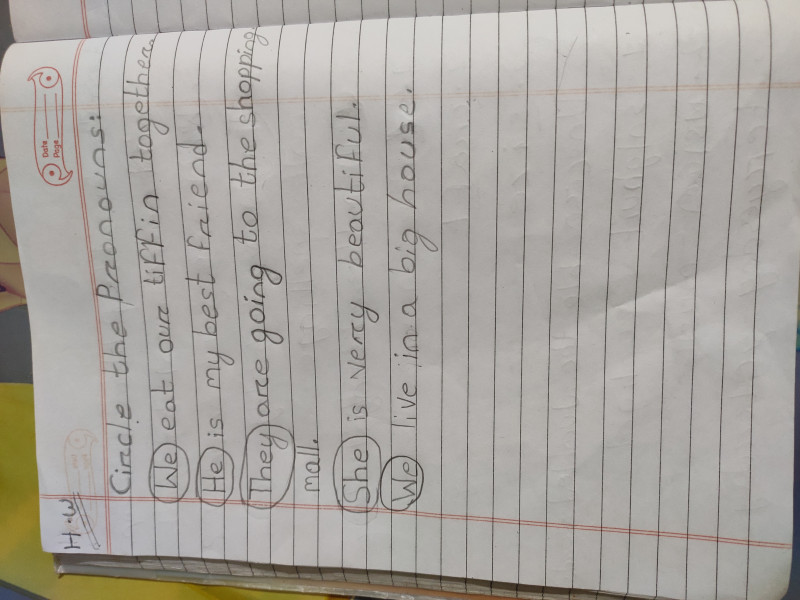 H.W
Date
Page
Circle the Pronouns:
We eat our tiffin together.
He is my best friend.
They are going to the shopping
mall.
She is very beautiful.
We live in a big house.